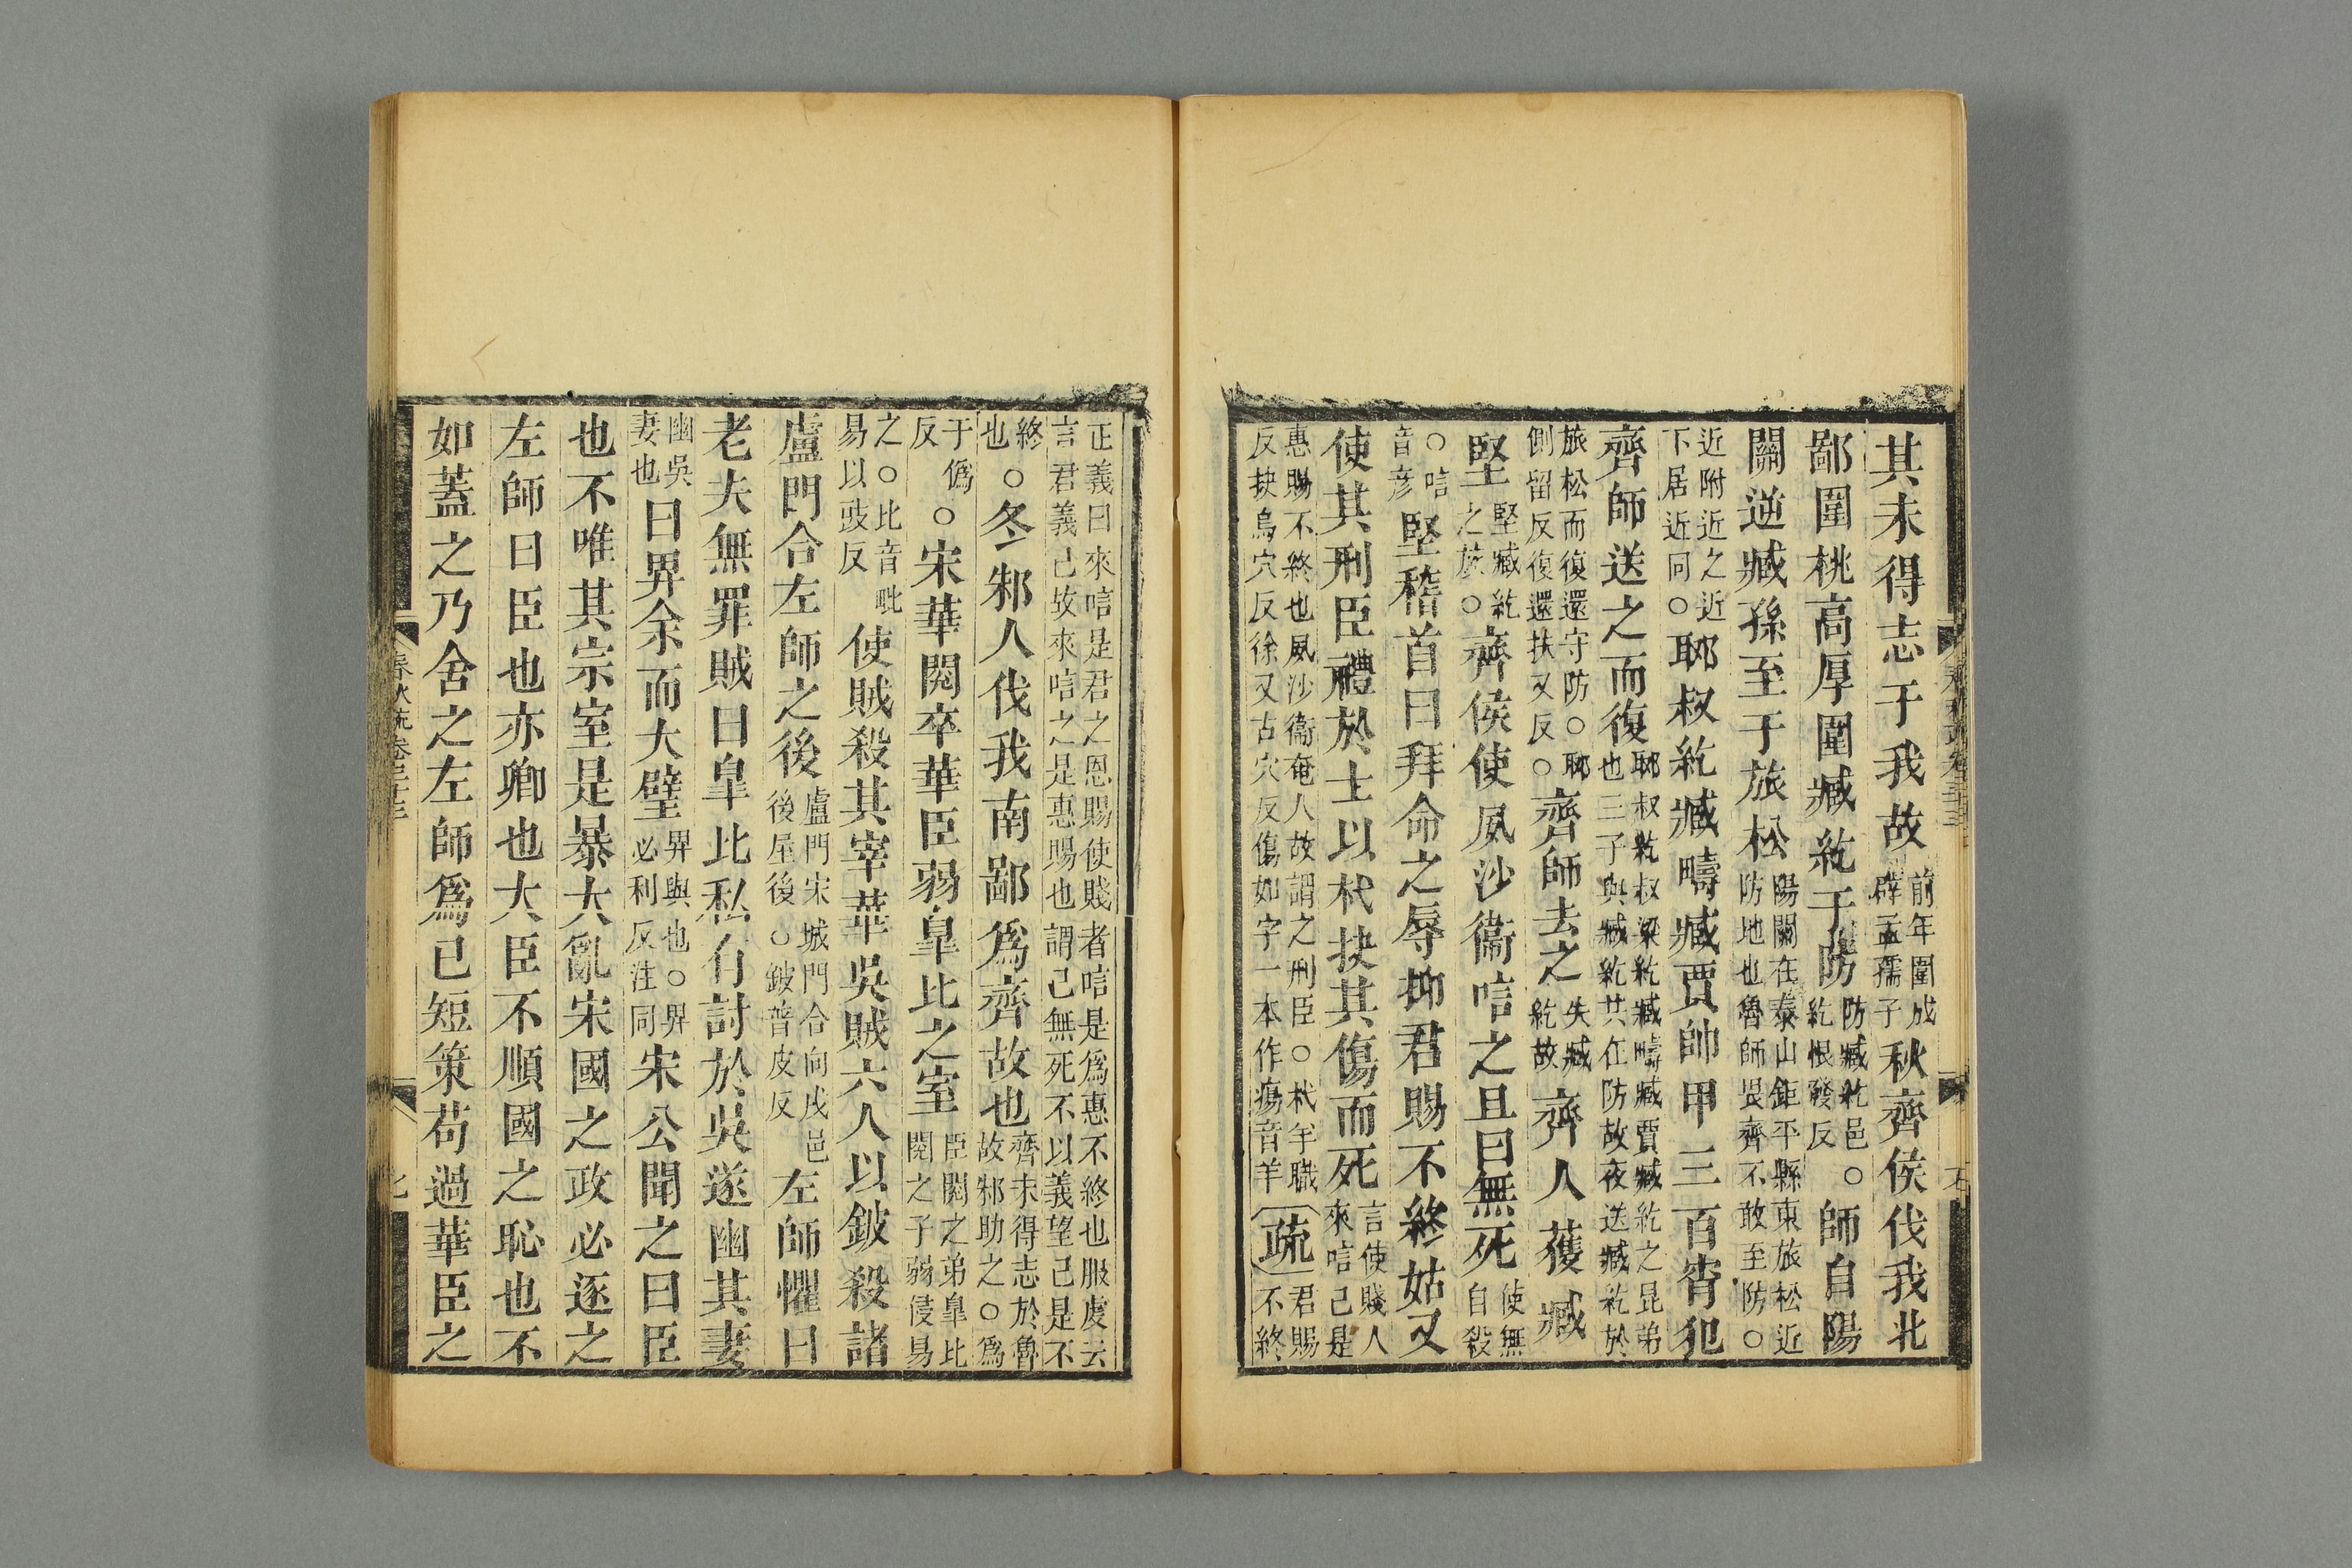 其未得志于我故前年圍成辟孟孺子秋齊侯伐我北
鄙圍桃高厚圍臧紇于防防臧紇邑○紇恨發反師自陽
關逆臧孫至于旅松陽關在泰山鉅平縣東旅松近防地也魯師畏齊不敢至防○
近附近之近下居近同○郰叔紇臧疇臧賈帥甲三百宵犯
齊師送之而復郰叔紇叔梁紇臧疇臧賈臧紇之昆弟也三子與臧紇共在防故夜送臧紇於
旅松而復還守防○郰側留反復還扶又反○齊師去之失臧紇故齊人獲臧
堅堅臧紇之族○齊侯使夙沙衞唁之且曰無死使無自殺
○唁音彥堅稽首曰拜命之辱抑君賜不終姑又
使其刑臣禮於士以杙抉其傷而死言使賤人來唁己是
惠賜不終也夙沙衞奄人故謂之刑臣○杙羊職反抉烏穴反徐又古穴反傷如字一本作瘍音羊疏君賜不終
正義曰來唁是君之恩賜使賤者唁是爲惠不終也服虔云言君義己故來唁之是惠賜也謂己無死不以義望己是不
終也○冬邾人伐我南鄙爲齊故也齊未得志於魯故邾助之○爲
于僞反○宋華閱卒華臣弱皐比之室臣閱之弟皐比閱之子弱侵易
之○比音毗易以豉反使賊殺其宰華吳賊六人以鈹殺諸
盧門合左師之後盧門宋城門合向戌邑後屋後○鈹普皮反左師懼曰
老夫無罪賊曰皐比私有討於吳遂幽其妻
幽吳妻也曰畀余而大璧畀與也○畀必利反注同宋公聞之曰臣
也不唯其宗室是暴大亂宋國之政必逐之
左師曰臣也亦卿也大臣不順國之恥也不
如蓋之乃舍之左師爲已短策苟過華臣之
春秋疏卷三十三